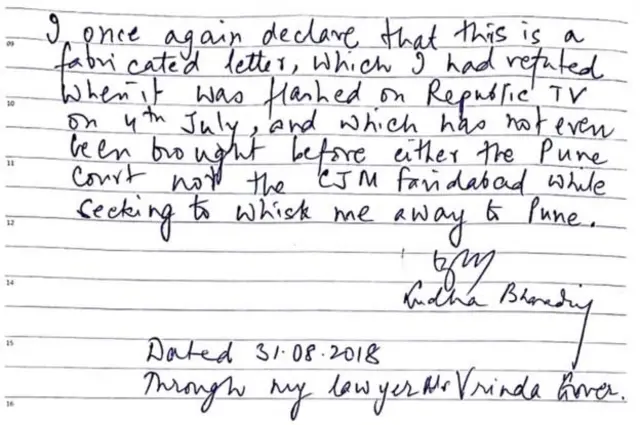 09
I once again declare that this is a
fabricated letter, which I had refuted
10
when it was flashed on Republic TV
on 4th July, and which has not even
11
been brought before either the Pune
Court nor the CJM Faridabad while
12
seeking to whisk me away to Pune.
14
Sudha Bharadwaj
15
Dated 31.08.2018
16
Through my lawyer Ms Vrinda Grover.